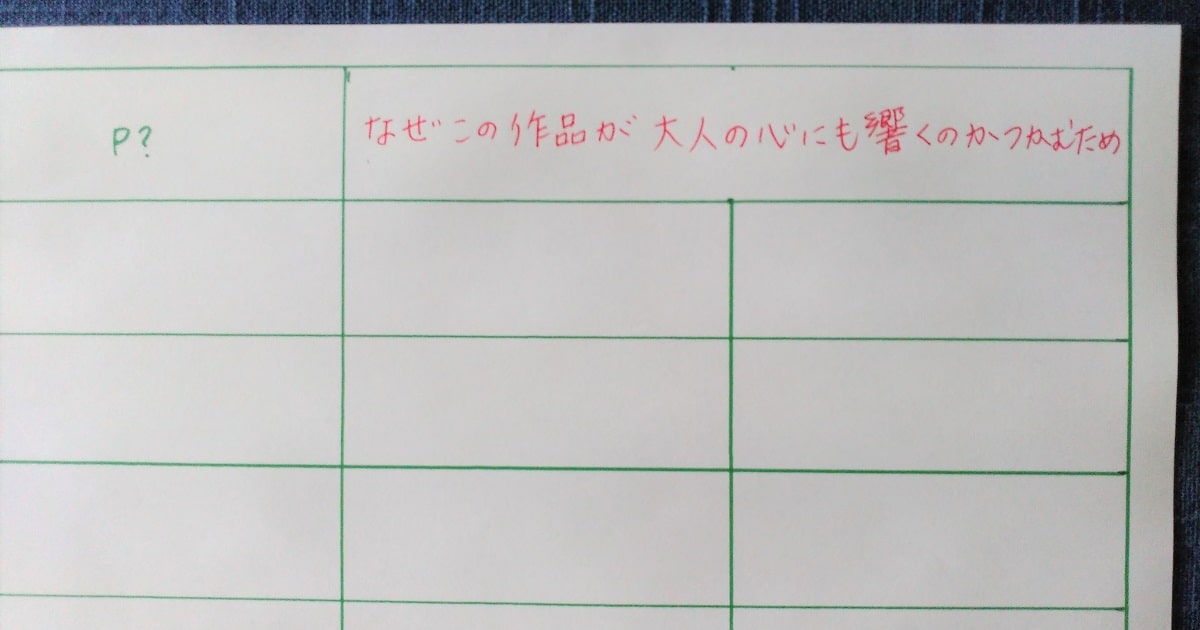 P?
なぜこの作品が大人の心にも響くのかつかむため